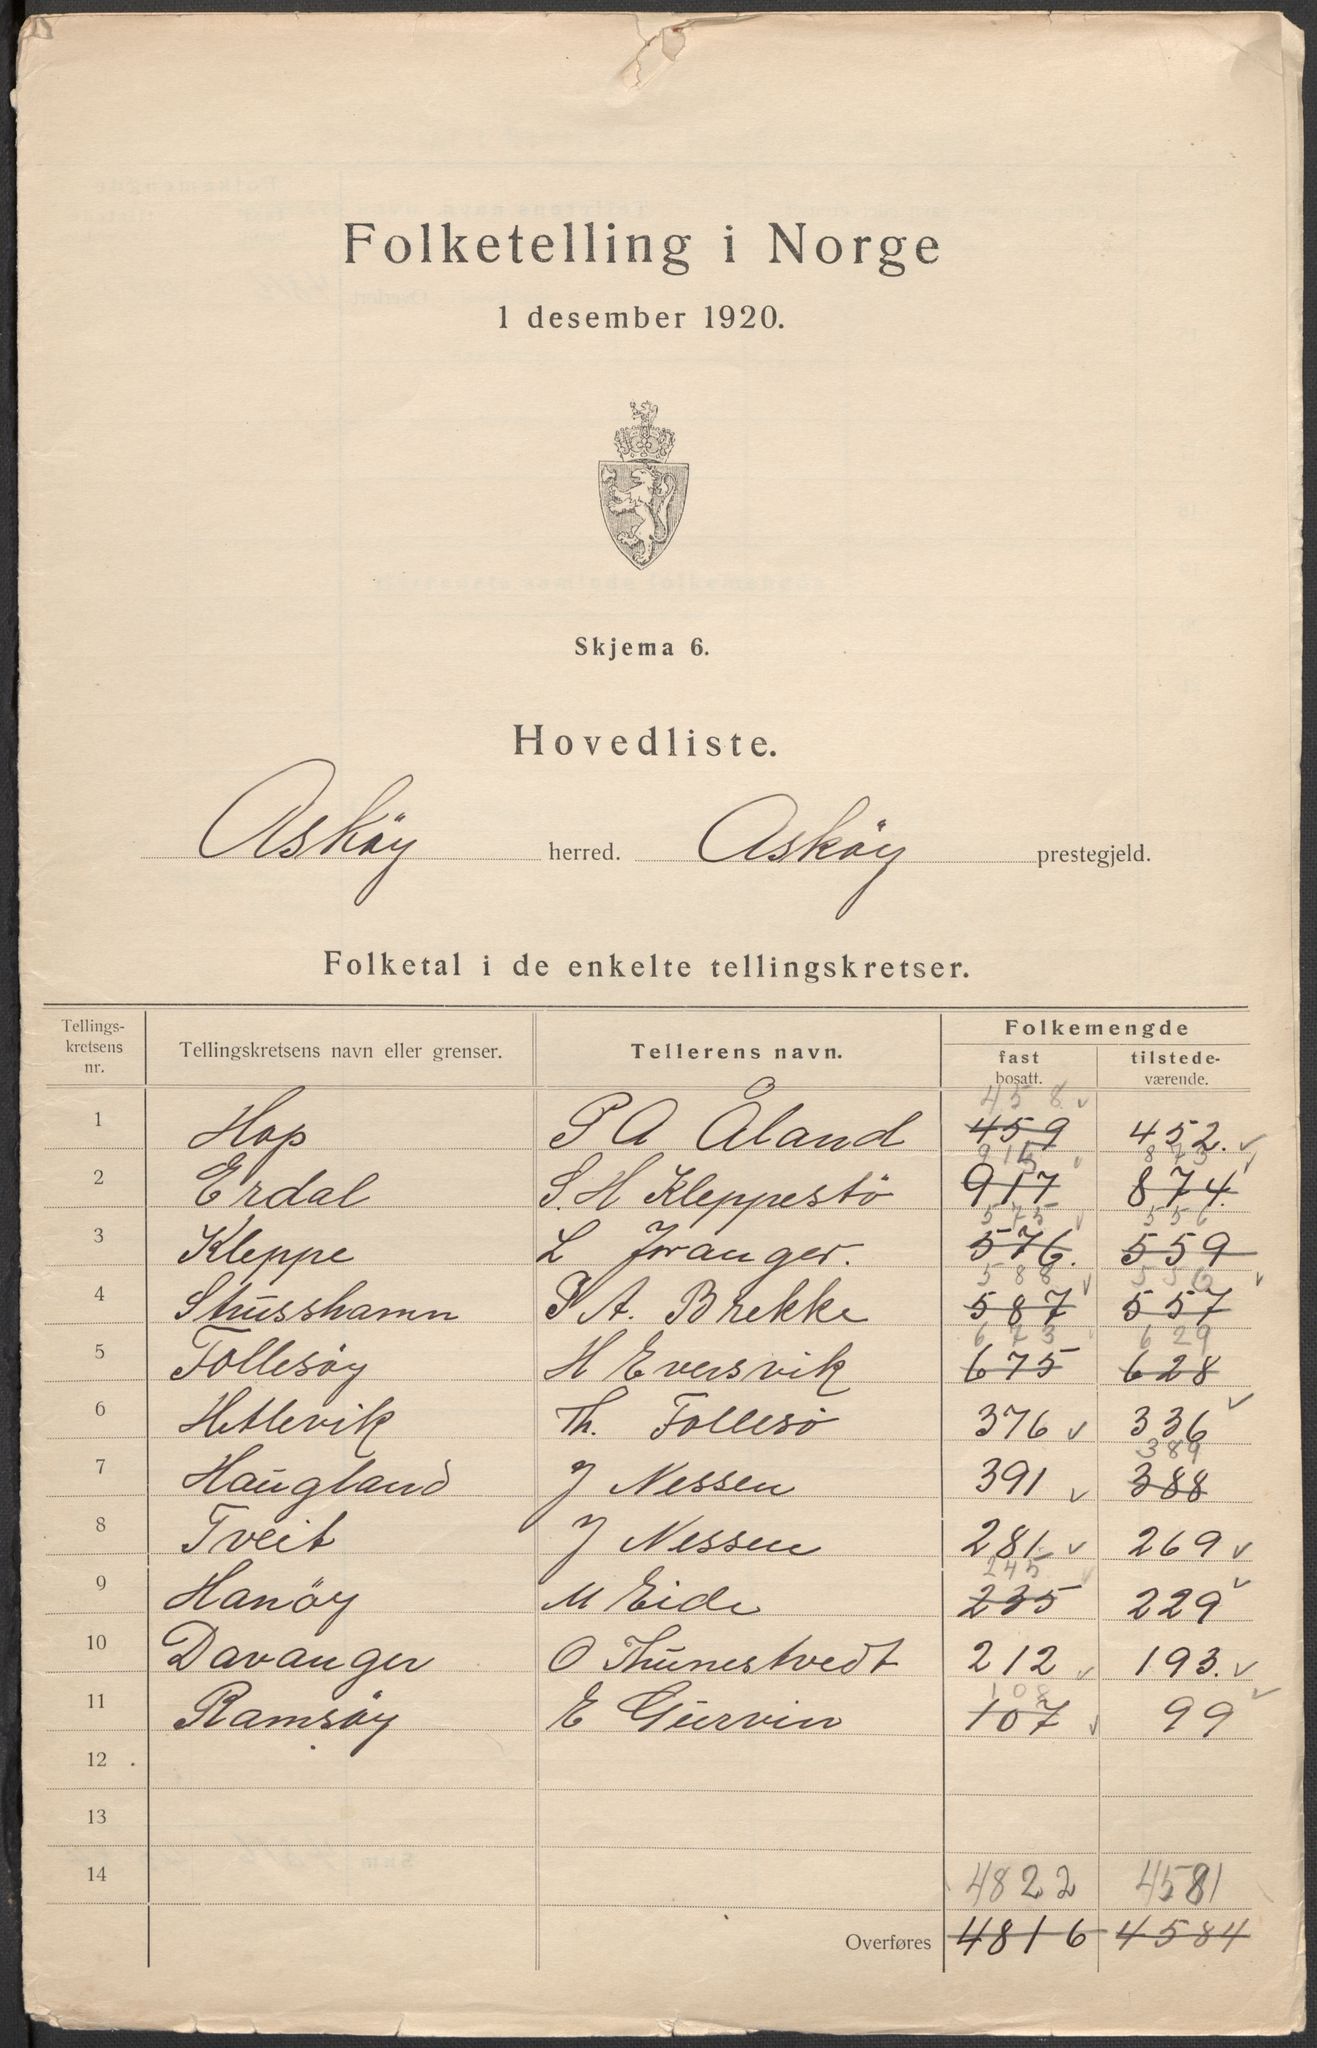 Folketelling i Norge
1 desember 1920.
Skjema 6.
Hovedliste.
Asköy herred. Asköy prestegjeld.
Folketal i de enkelte tellingskretser.
Tellings-
kretsens
nr.
Tellingskretsens navn eller grenser.
Tellerens navn.
Folkemengde
fast
bosatt.
tilstede-
værende.
458
1 Hop P A Åland 459 452.
915 873
2 Erdal S. H Kleppestö 917 874.
575 556
3 Kleppe L Joranger. 576. 559
588 556
4 Strusshamn P A. Brekke 587 557
673 629
5 Follesöy H Eversvik 675 628
6 Hetlevik Th. Follesö 376 336
389
7 Haugland J Nessen 391 388
8 Tveit J Nessen 281. 269
245
9 Hanöy M Eide 235 229
10 Davanger O Thunestvedt 212 193.
108
11 Ramsöy E Gurvin 107 99
12
13
14 4822 4581
Overføres 4816 4584